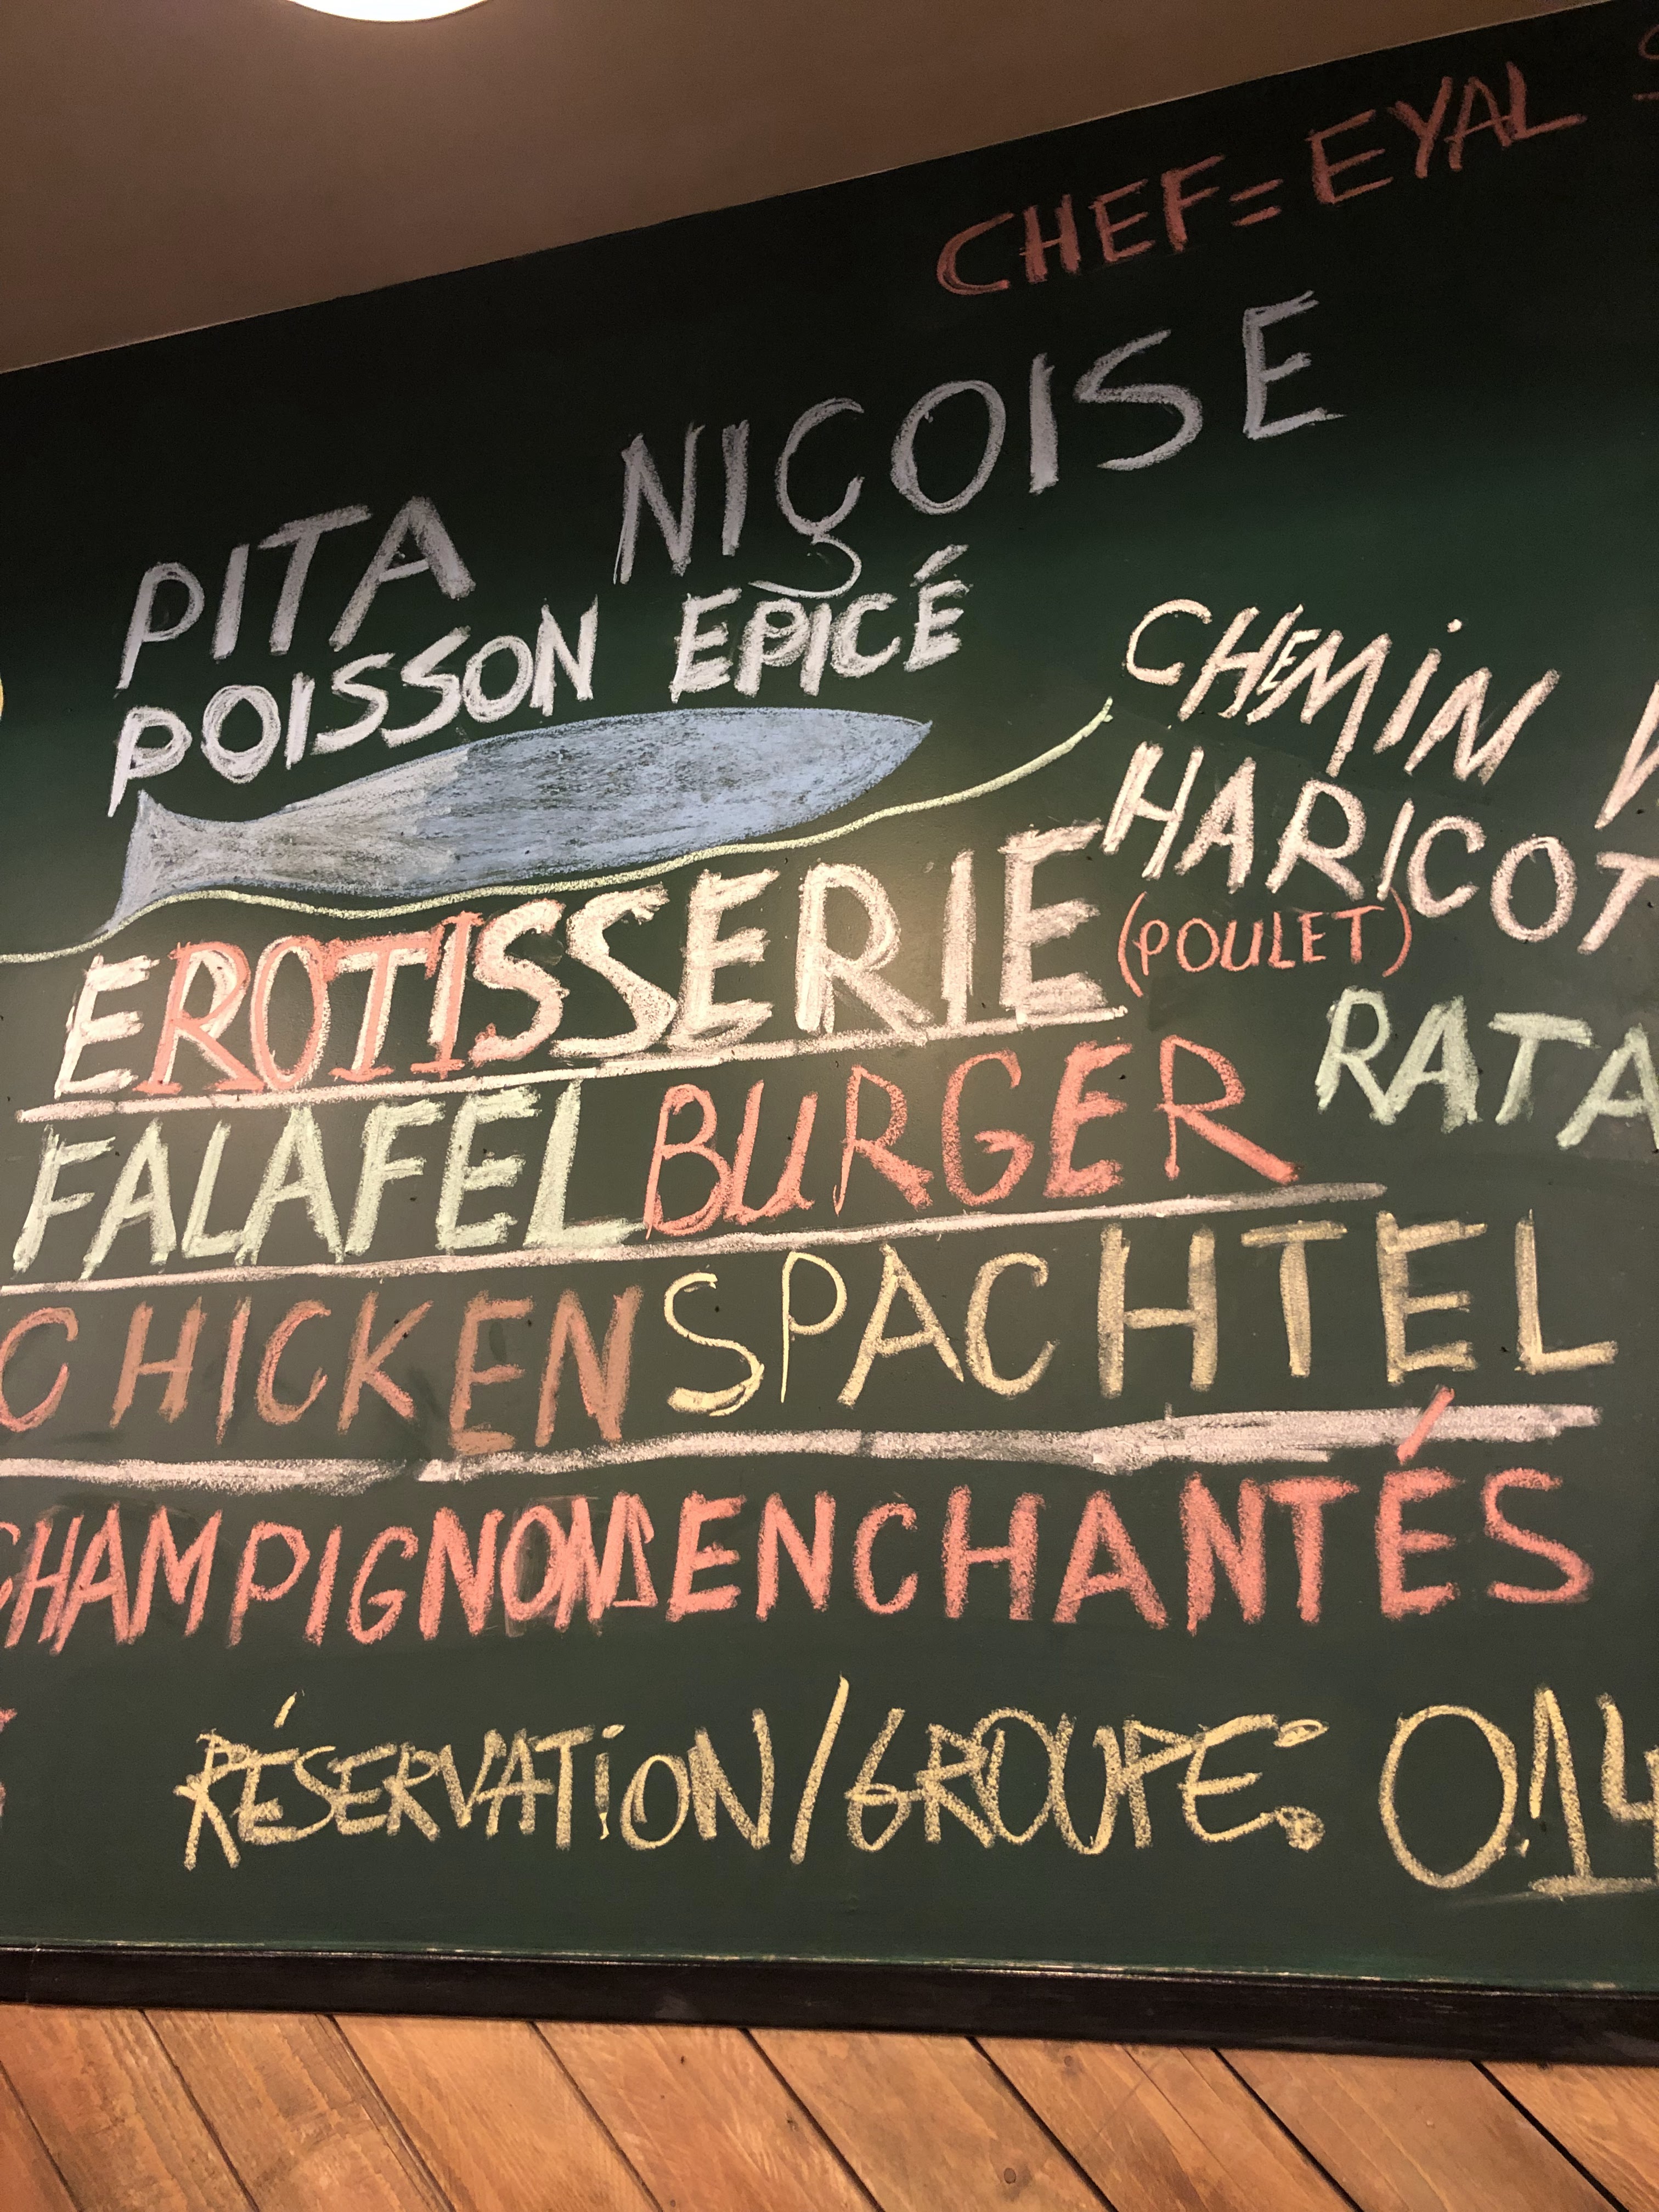 CHEF = EYAL
PITA NIÇOISE
POISSON EPICÉ
CHEMIN
HARICOT
EROTISSERIE (POULET)
RATA
FALAFEL BURGER
CHICKEN SPACHTEL
CHAMPIGNONS ENCHANTÉS
RÉSERVATION/GROUPE: 014